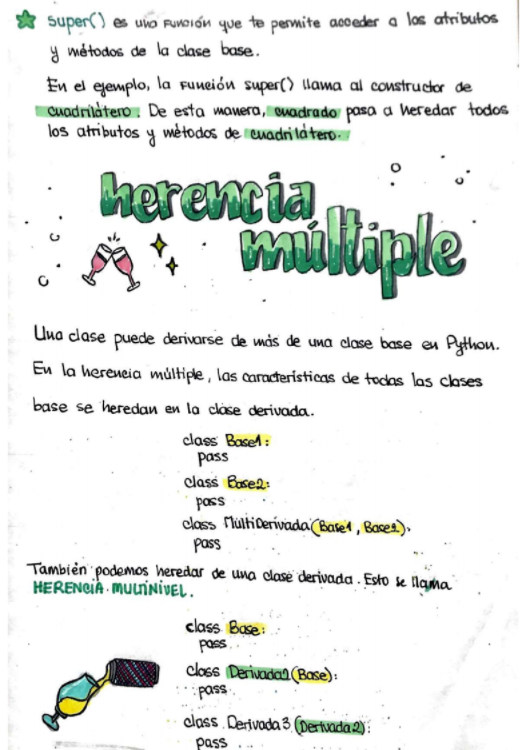 super() es una función que te permite acceder a los atributos
y métodos de la clase base.
En el ejemplo, la función super() llama al constructor de
cuadrilátero. De esta manera, cuadrado pasa a heredar todos
los atributos y métodos de cuadrilátero.
herencia
múltiple
Una clase puede derivarse de más de una clase base en Python.
En la herencia múltiple, las características de todas las clases
base se heredan en la clase derivada.
class Base1:
pass
class Base2:
pass
class MultiDerivada(Base1, Base2):
pass
También podemos heredar de una clase derivada. Esto se llama
HERENCIA MULTINIVEL.
class Base:
pass
class Derivada2(Base):
pass
class Derivada3(Derivada2):
pass